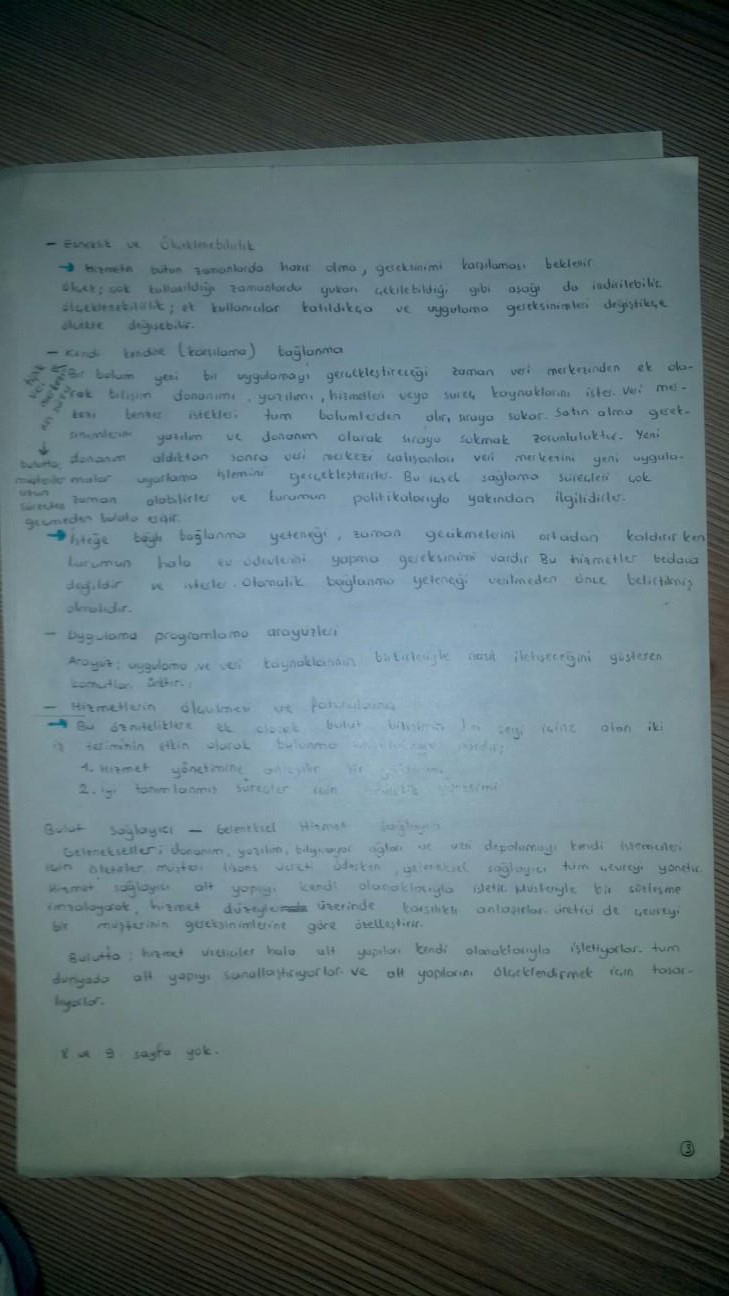 - Esneklik ve Ölçeklenebilirlik
→ Hizmetin bütün zamanlarda hazır olma, gereksinimi karşılaması beklenir.
ölçek; çok kullanıldığı zamanlarda yukarı çekilebildiği gibi aşağı da indirilebilir.
ölçeklenebilirlik; ek kullanıcılar katıldıkça ve uygulama gereksinimleri değiştikçe
ölçekte değişebilir.
- Kendi kendine (karşılama) bağlanma
Bir bölüm yeni bir uygulamayı gerçekleştireceği zaman veri merkezinden ek ola-
rak bilişim donanımı, yazılımı, hizmetleri veya süreç kaynaklarını ister. Veri mer-
kezi benzer istekleri tüm bölümlerden alır, sıraya sokar. Satın alma gerek-
sinimlerini yazılım ve donanım olarak sıraya sokmak zorunluluktur. Yeni
donanım aldıktan sonra veri merkezi çalışanları veri merkezini yeni uygula-
malar uyarlama işlemini gerçekleştirirler. Bu içsel sağlama süreçleri çok
zaman alabilirler ve kurumun politikalarıyla yakından ilgilidirler.
↓
bulutta;
müşteriler
uzun
süreçten
geçmeden buluta erişir.
→ İsteğe bağlı bağlanma yeteneği, zaman gecikmelerini ortadan kaldırırken
kurumun hala ev ödevlerini yapma gereksinimi vardır Bu hizmetler bedava
değildir ve isterler. Otomatik bağlanma yeteneği verilmeden önce belirtilmiş
olmalıdır.
- Uygulama programlama arayüzleri
Arayüz; uygulama ve veri kaynaklarının birbirleriyle nasıl iletişeceğini gösteren
komutları üretir.
- Hizmetlerin ölçülmesi ve faturalama
→ Bu özniteliklere ek olarak bulut bilişimin her şeyi içine alan iki
iş teriminin etkin olarak bulunma
1. Hizmet yönetimine bir
2. iyi tanımlanmış süreçler için yönetimi
Bulut Sağlayıcı - Geleneksel Hizmet Sağlayıcı
Gelenekseller; donanım, yazılım, bilgisayar ağları ve veri depolamayı kendi istemcileri
için işletirler. müşteri lisans ücreti öderken, geleneksel sağlayıcı tüm çevreyi yönetir.
Hizmet sağlayıcı alt yapıyı kendi olanaklarıyla işletir. Müşteriyle bir sözleşme
imzalayarak, hizmet düzeyle üzerinde karşılıklı anlaşırlar. Üretici de çevreyi
bir müşterinin gereksinimlerine göre özelleştirir.
Bulutta; hizmet üreticiler hala alt yapıları kendi olanaklarıyla işletiyorlar. tüm
dünyada alt yapıyı sanallaştırıyorlar ve alt yapılarını ölçeklendirmek için tasar-
lıyorlar.
8 ve 9. sayfa yok.
3